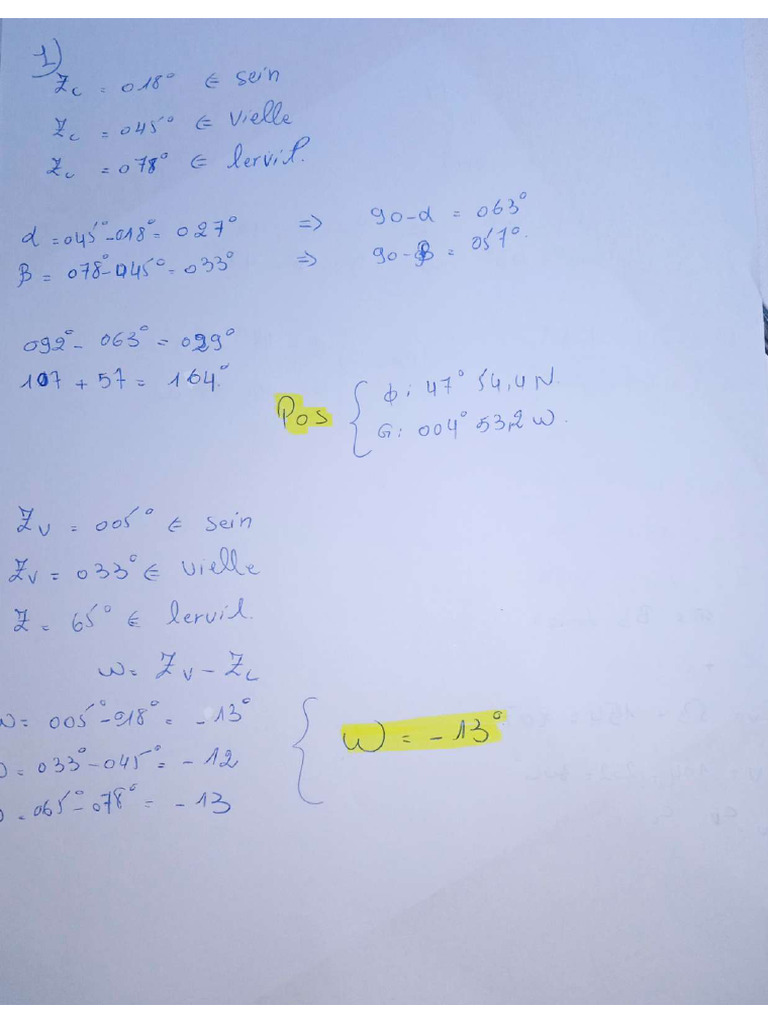 1)
Zc = 018° ∈ sein
Zc = 045° ∈ Vielle
Zc = 078° ∈ lervil.
α = 045° - 018° = 027° => 90 - α = 063°
β = 078 - 045° = 033° => 90 - β = 057°.
092° - 063° = 029°
107 + 57 = 164°
Pos { φ : 47° 54,4 N.
G : 004° 53,2 W.
Zv = 005° ∈ sein
Zv = 033° ∈ vielle
Z = 65° ∈ lervil.
W = Zv - Zc
W = 005° - 018° = - 13°
= 033° - 045° = - 12
= 065° - 078° = - 13
W = - 13°